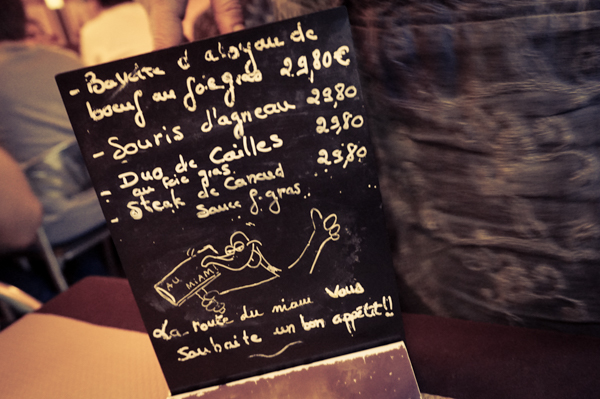 - Bavette d'aloyau de
boeuf au foie gras 29,80€
- Souris d'agneau 29,80
- Duo de Cailles 29,80
au foie gras
- Steak de Canard 29,80
Sauce f. gras
AU
MIAM!
La route du miam Vous
Souhaite un bon appétit!!